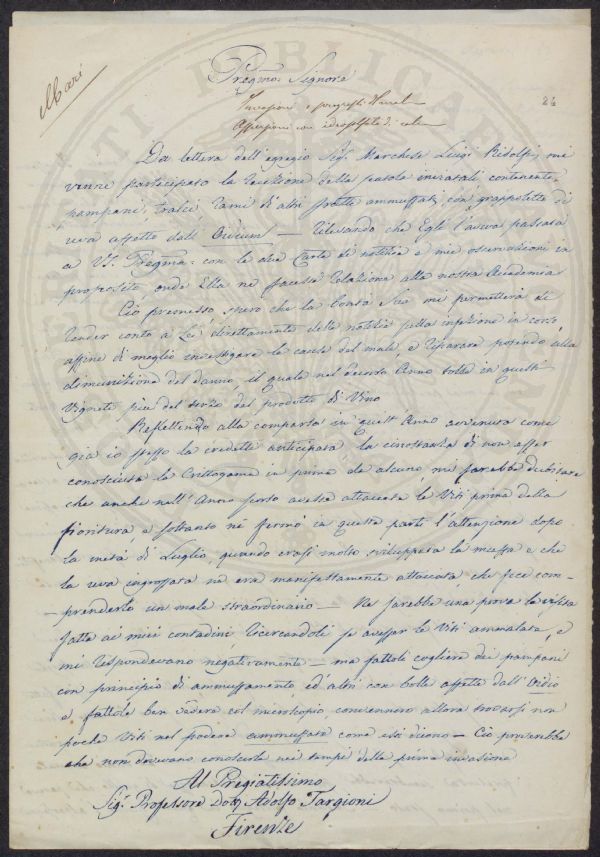 Mari
Pregmo. Signore
24
Aspersioni con idrosolfito di calce
Da lettera dell'egregio Sig. Marchese Luigi Ridolfi, mi
venne partecipato la recezione della scatola inviatali contenente
pampani, tralci, rami d'altri frutti ammuffati, con grappoletto di
uva affetto dall' Oidium — Rilevando che Egli l'aveva passata
a VS. Pregma: con le due Carte di notizia e mie osservazioni in
proposito, onde Ella ne facesse relazione alla nostra Accademia
Ciò premesso spero che la bontà Sua mi permetterà di
render conto a Lei direttamente delle notizie sulla infezione in corso
affine di meglio investigare la causa del male, e riparare potendo alla
diminuzione del danno, il quale nel decorso Anno tolse in questi
Vigneti più del terzo del prodotto di Vino
Reflettendo alla comparsa in quest'Anno avvenuta come
già io stesso la credetti anticipata la circostanza di non esser
conosciuta la Crittogama in prima da alcuno mi farebbe dubitare
che anche nell'Anno scorso avesse attaccate le Viti prima della
fioritura, e soltanto ne fermò in queste parti l'attenzione dopo
la metà di Luglio, quando erasi molto sviluppata la muffa e che
la uva ingrossata ne era manifestamente attaccata, che fece com-
-prenderlo un male straordinario — Ne sarebbe una prova la visita
fatta ai miei contadini, ricercandoli se avesser le Viti ammalate, e
mi rispondevano negativamente — ma fattoli cogliere dei pampani
con principio di ammuffamento, ed altri con bolle affette dall'oidio
e fattole ben vedere col microscopio, convennero allora trovarsi non
poche Viti nel podere ammuffate come essi dicono — Ciò proverebbe
che non dovevano conoscerle nei tempi della prima invasione
Al Pregiatissimo
Sig. Professore Dott. Adolfo Targioni
Firenze